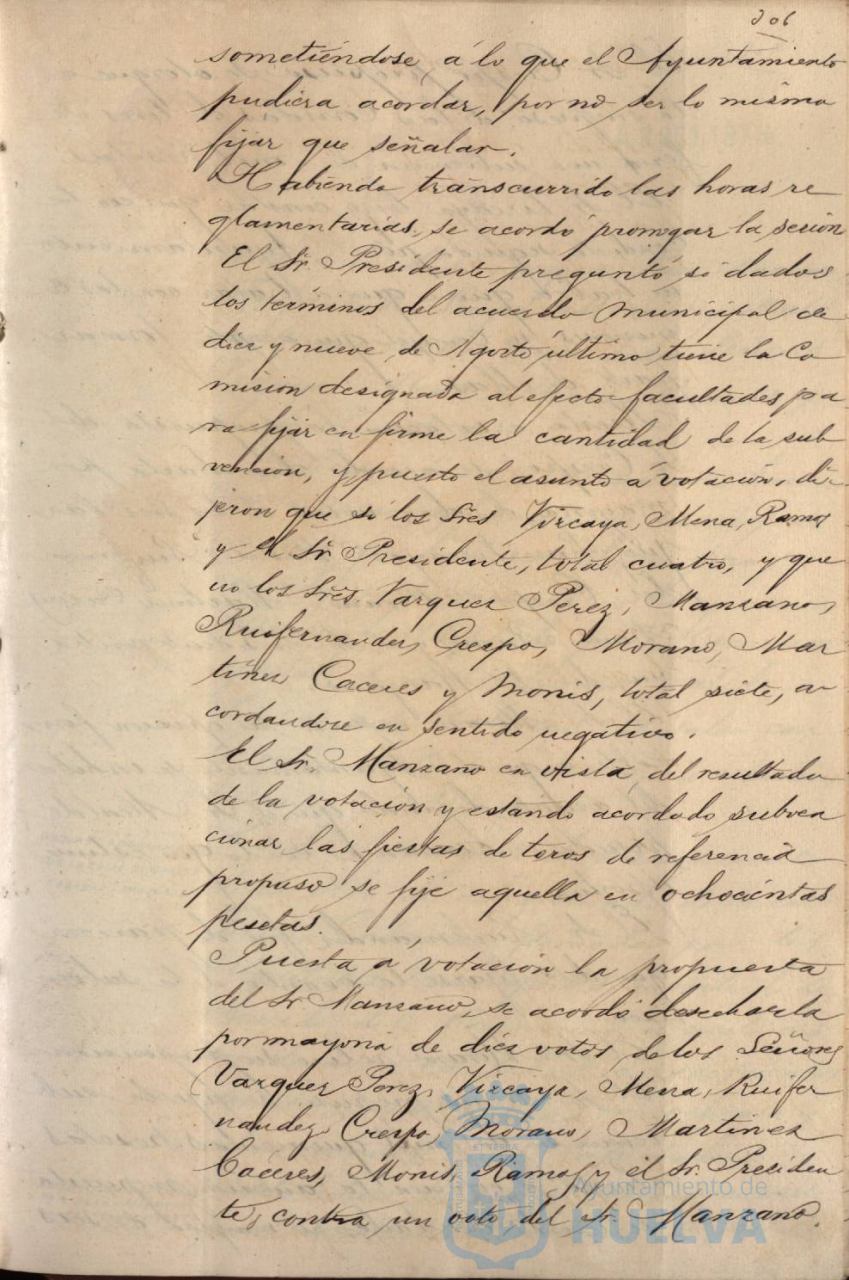 306
sometiéndose, á lo que el Ayuntamiento
pudiera acordar, por no ser lo mismo
fijar que señalar.
Habiendo transcurrido las horas re
glamentarias, se acordó prorrogar la sesión
El Sr. Presidente preguntó si dados
los términos del acuerdo municipal de
diez y nueve de Agosto último tiene la Co
mision designada al efecto facultades pa-
ra fijar en firme la cantidad de la sub
vencion, y puesto el asunto á votación, di-
jeron que si los Sres Vizcaya, Mena, Ramos
y el Sr. Presidente, total cuatro, y que
no los Sres. Vazquez Perez, Manzano,
Ruifernandez, Crespo, Morano, Mar
tinez Caceres y Monis, total siete, a
cordandose en sentido negativo.
El Sr. Manzano en vista del resultado
de la votación y estando acordado subven
cionar las fiestas de toros de referencia
propuso se fije aquella en ochocientas
pesetas.
Puesta á votación la propuesta
del Sr Manzano, se acordó desecharla
por mayoria de diez votos de los Señores
Vazquez Perez, Vizcaya, Mena, Ruifer
nandez Crespo, Morano, Martinez
Caceres, Monis, Ramos y el Sr. Presiden
te, contra un voto del Sr. Manzano.
Ayuntamiento de
HUELVA